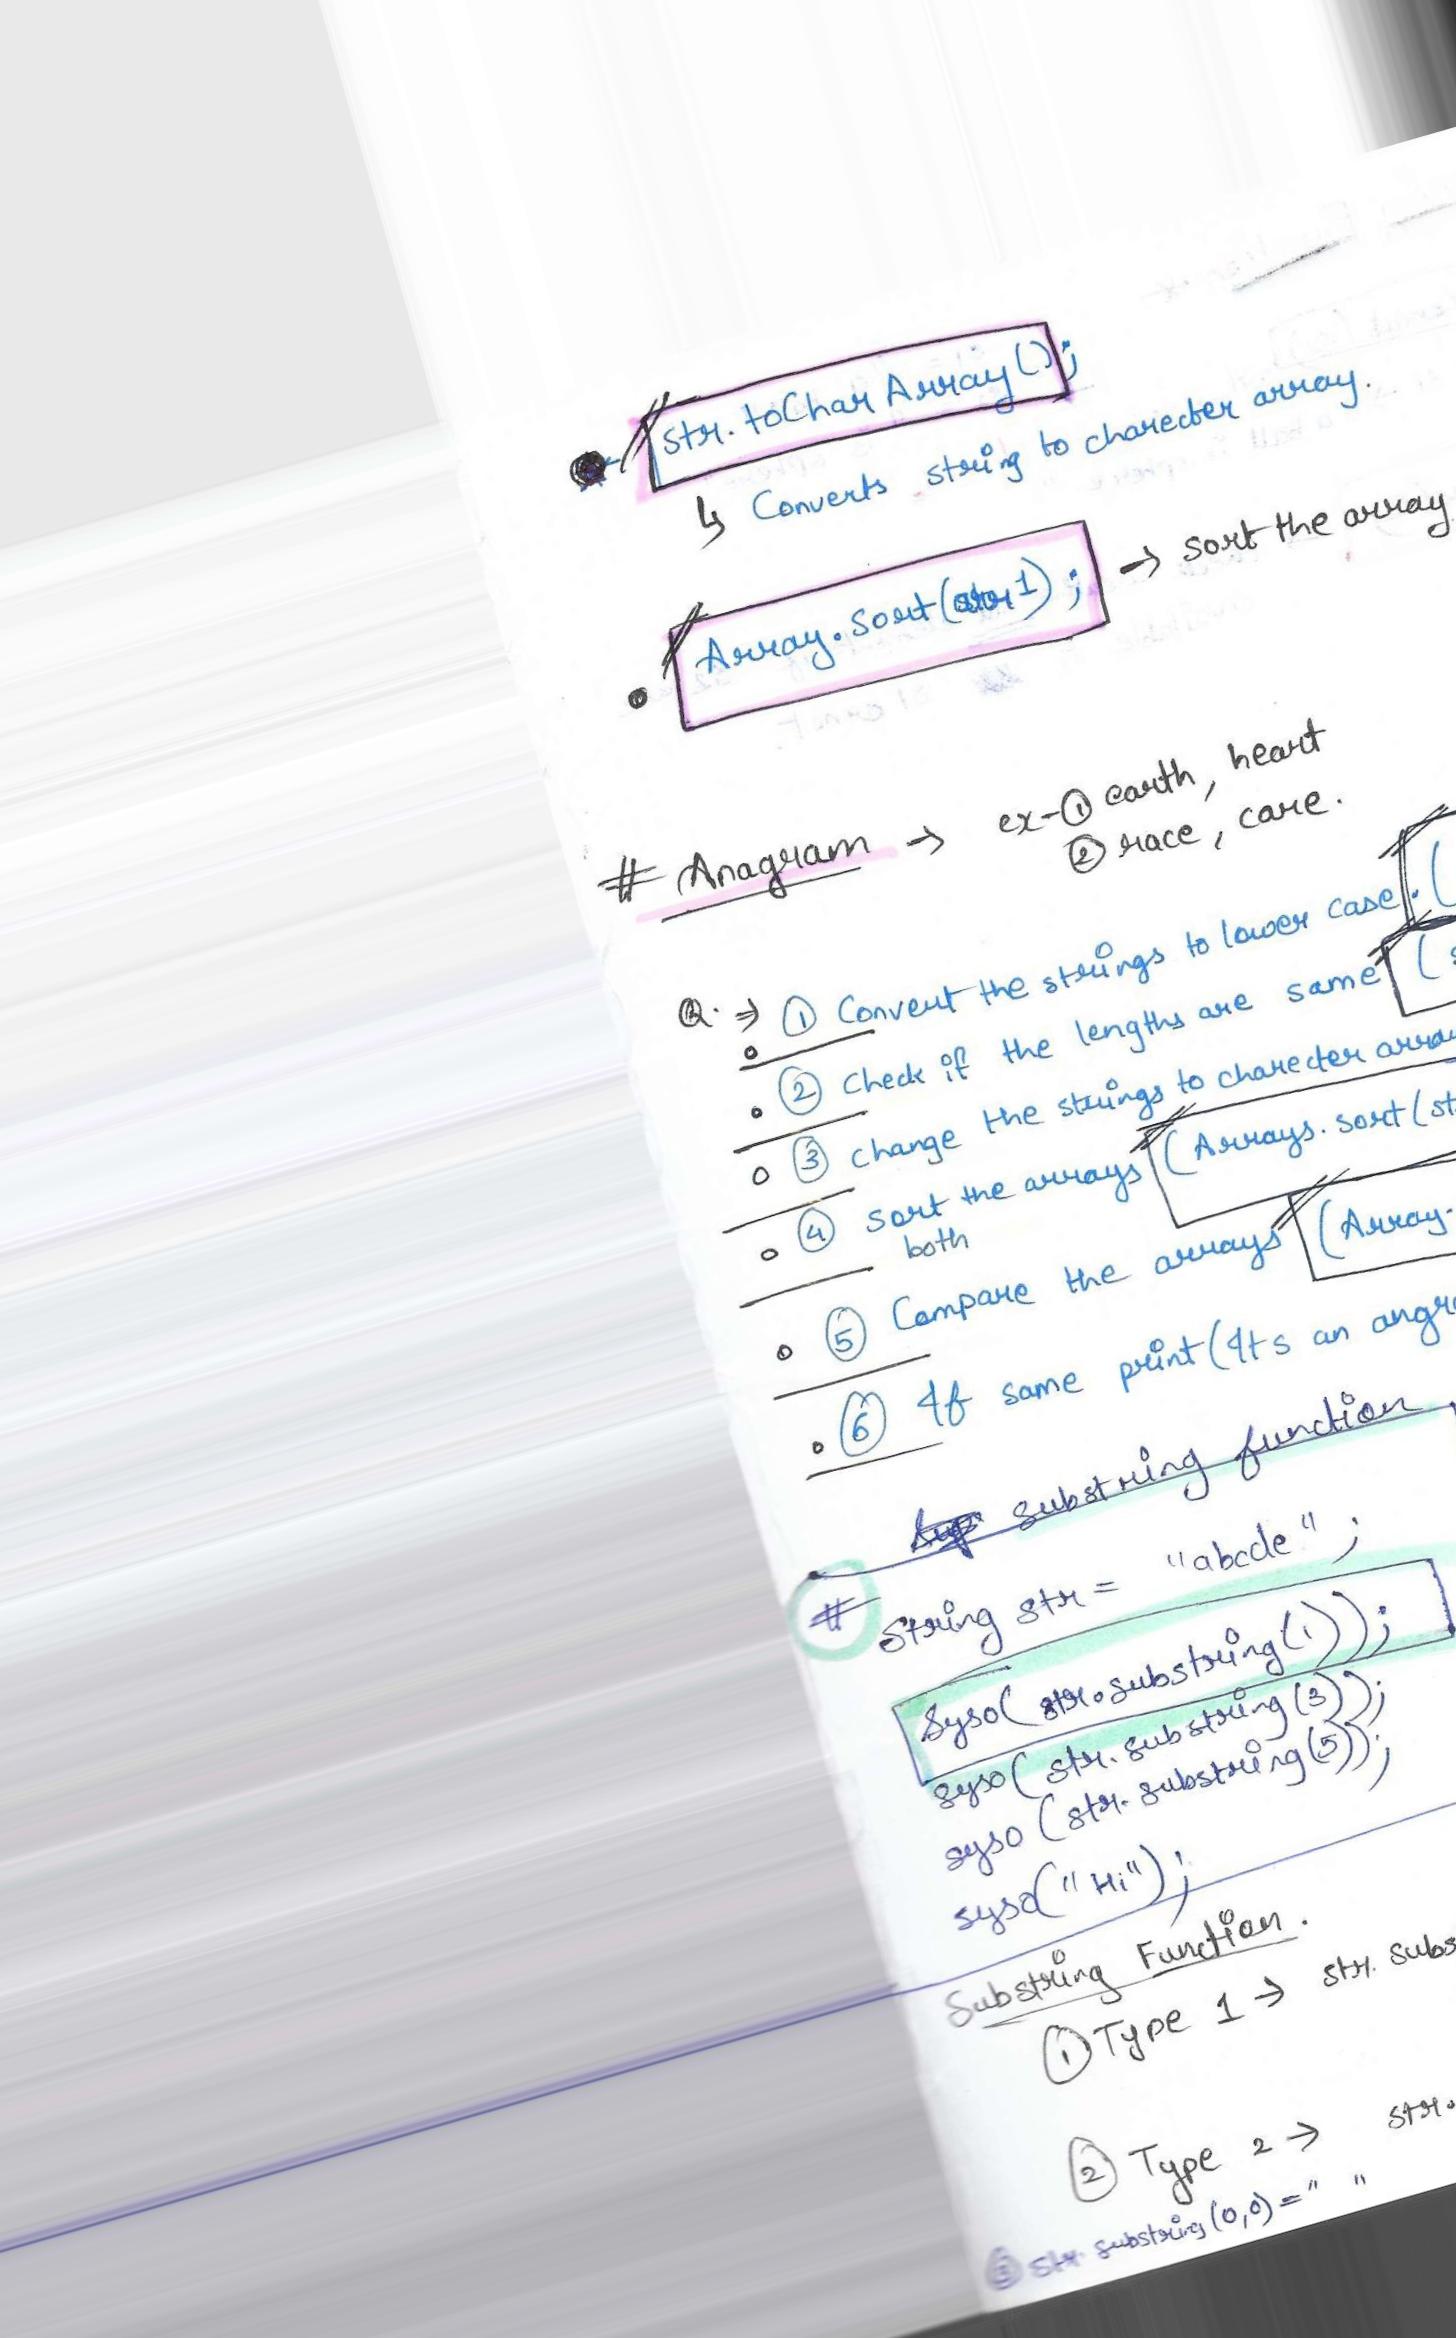 str.toCharArray();
↳ Converts string to charecter array.
Array.sort(str1); → sort the array
# Anagram → ex-① earth, heart
② race, care.
Q. ⇒ ① Convert the strings to lower case. (
② Check if the lengths are same (s
③ change the strings to charecter arra
④ sort the arrays (Arrays.sort(st
both
⑤ Compare the arrays (Array.
⑥ If same print(Its an angra
substring function
# String str = "abcde";
Syso( str.substring(1));
syso( str.substring(3));
syso (str.substring(5));
syso("Hi");
Substring Function.
① Type 1 → str. subs
② Type 2 → str.
③ str. substring(0,0) = " "